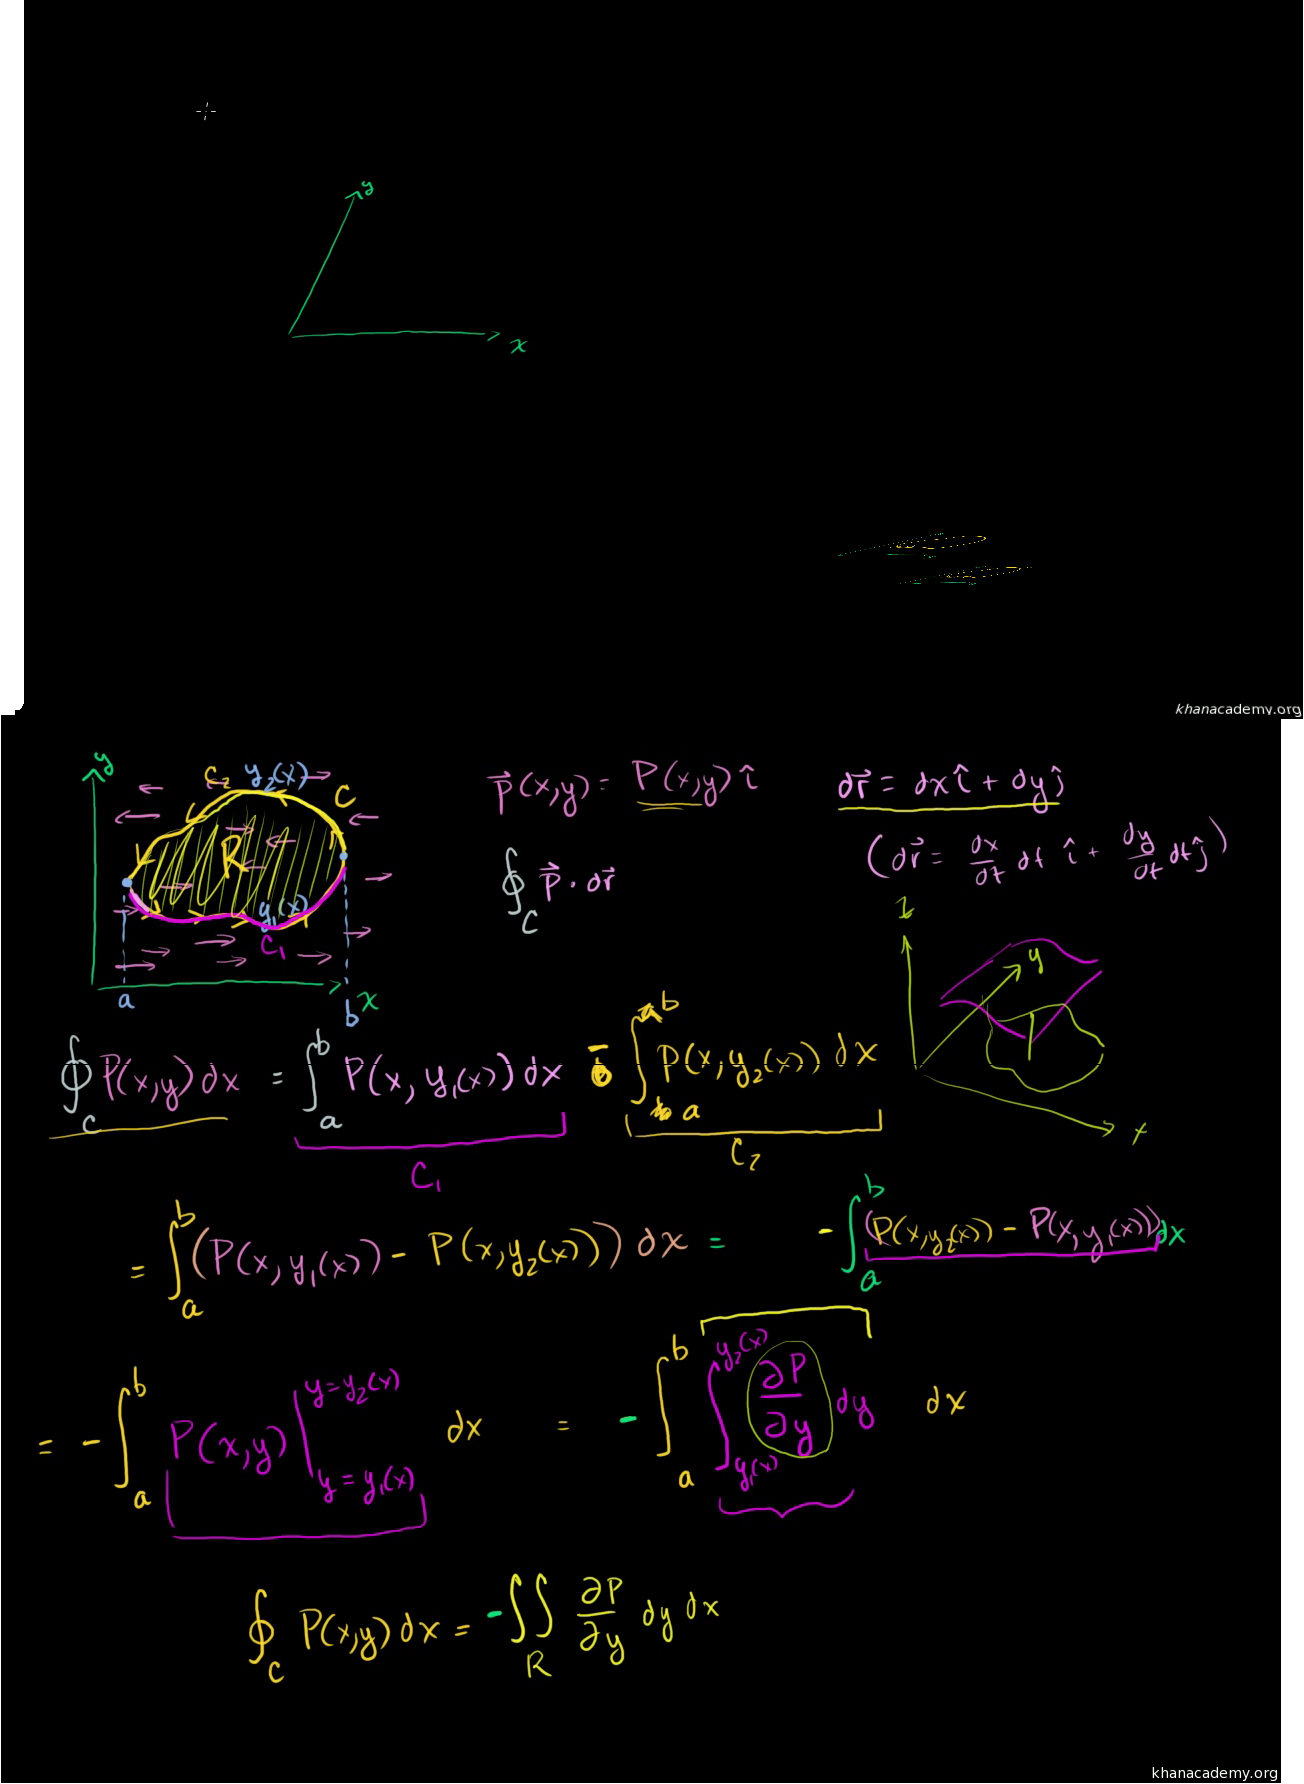 y
x
khanacademy.org
y
C₂ y₂(x)
C
P⃗(x,y) = P(x,y) î
dr⃗ = dx î + dy ĵ
R
(dr⃗ = dx/dt dt î + dy/dt dt ĵ)
∮_C P⃗ · dr⃗
y₁(x)
C₁
z
y
x
a
b
x
∮_C P(x,y) dx = ∫_a^b P(x, y₁(x)) dx - ∫_a^b P(x, y₂(x)) dx
C₁
C₂
= ∫_a^b (P(x, y₁(x)) - P(x, y₂(x))) dx = - ∫_a^b (P(x, y₂(x)) - P(x, y₁(x))) dx
= - ∫_a^b P(x,y) |_{y = y₁(x)}^{y = y₂(x)} dx = - ∫_a^b ∫_{y₁(x)}^{y₂(x)} ∂P/∂y dy dx
∮_C P(x,y) dx = - ∬_R ∂P/∂y dy dx
khanacademy.org